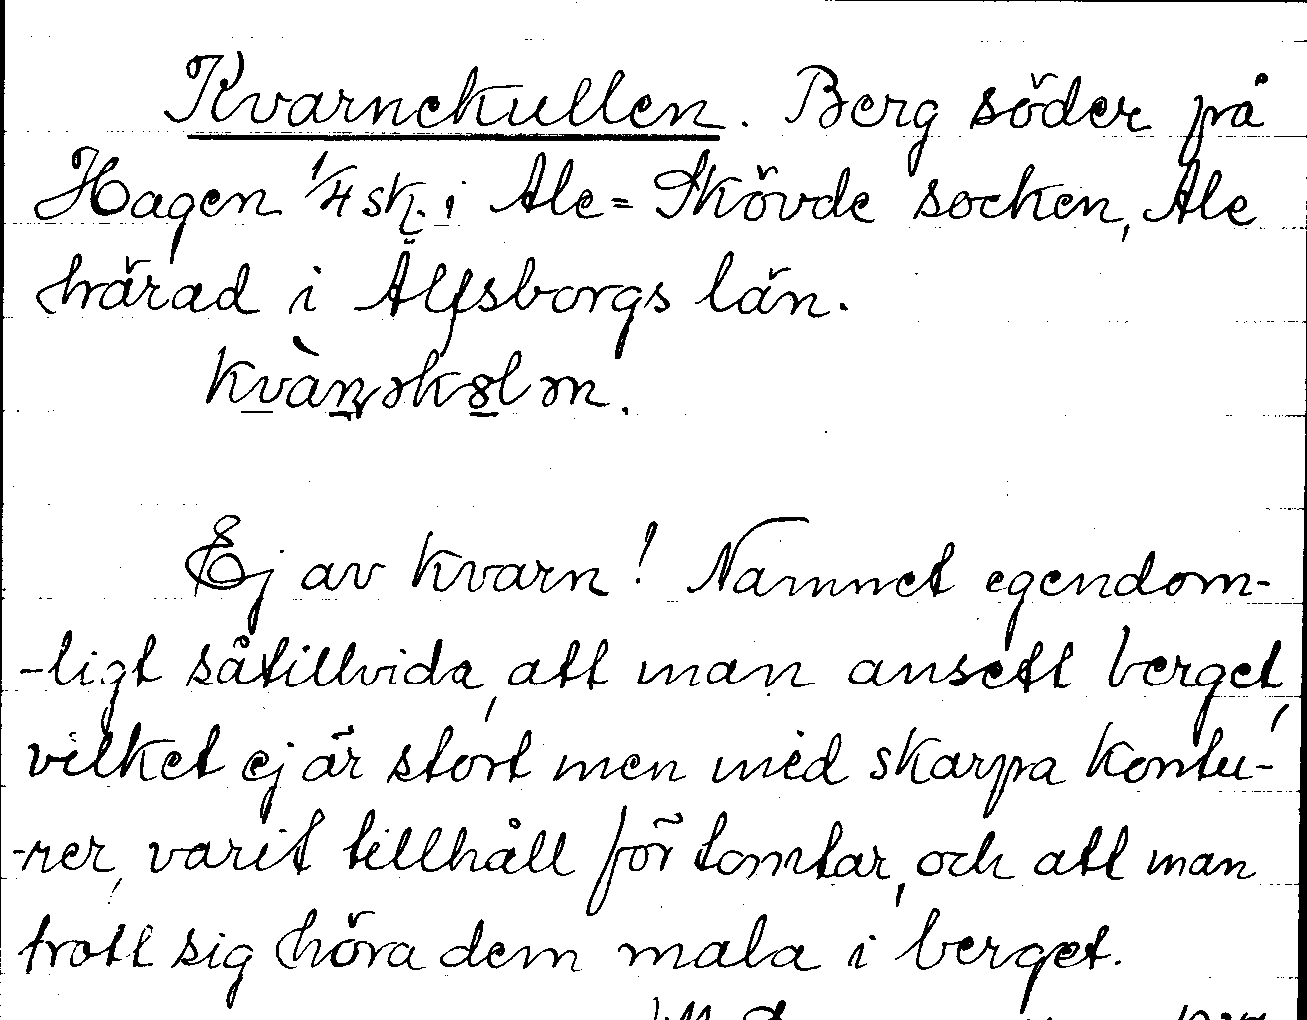 Kvarnekullen. Berg söder på
Hagen 1/4 sk. i Ale=Skövde socken, Ale
härad i Älfsborgs län.
Ej av kvarn! Namnet egendom-
-ligt såtillvida, att man ansett berget,
vilket ej är stort men med skarpa kontu-
-rer, varit tillhåll för tomtar, och att man
trott sig höra dem mala i berget.